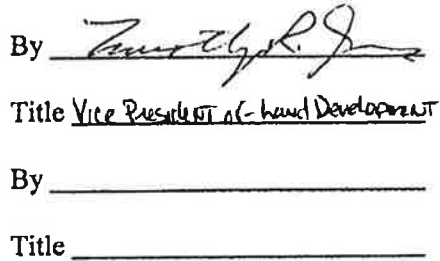 By Timothy R. J
Title Vice President of Land Development
By
Title